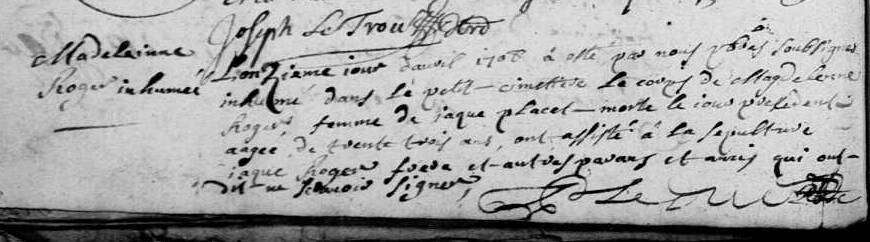 Joseph Le Trou
Madeleinne Lonziame jour davril 1708 à esté par nous pbres soubsignes
Roger inhumeé inhumé dans le petit cimettere Le corps de Magdelenne
Roger femme de jaque placet morte le jour presedent
aagee de trente trois ans, ont assisté à la sepulture
jaque Roger frere et autres parans et amis qui ont
dit ne scavoir signer